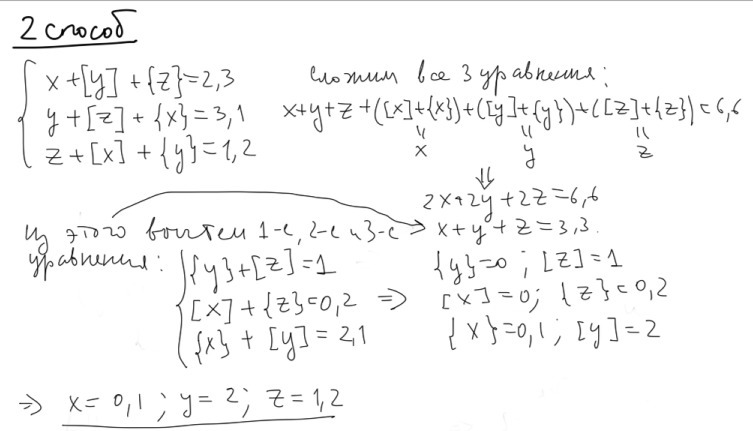 2 способ
x+[y]+{z}=2,3
y+[z]+{x}=3,1
z+[x]+{y}=1,2
Сложим все 3 уравнения:
x+y+z+([x]+{x})+([y]+{y})+([z]+{z})=6,6
x y z
2x+2y+2z=6,6
x+y+z=3,3.
Из этого вычтем 1-е, 2-е и 3-е
уравнения:
{y}+[z]=1
[x]+{z}=0,2 ⇒
{x}+[y]=2,1
{y}=0; [z]=1
[x]=0; {z}=0,2
{x}=0,1; [y]=2
⇒ x=0,1; y=2; z=1,2